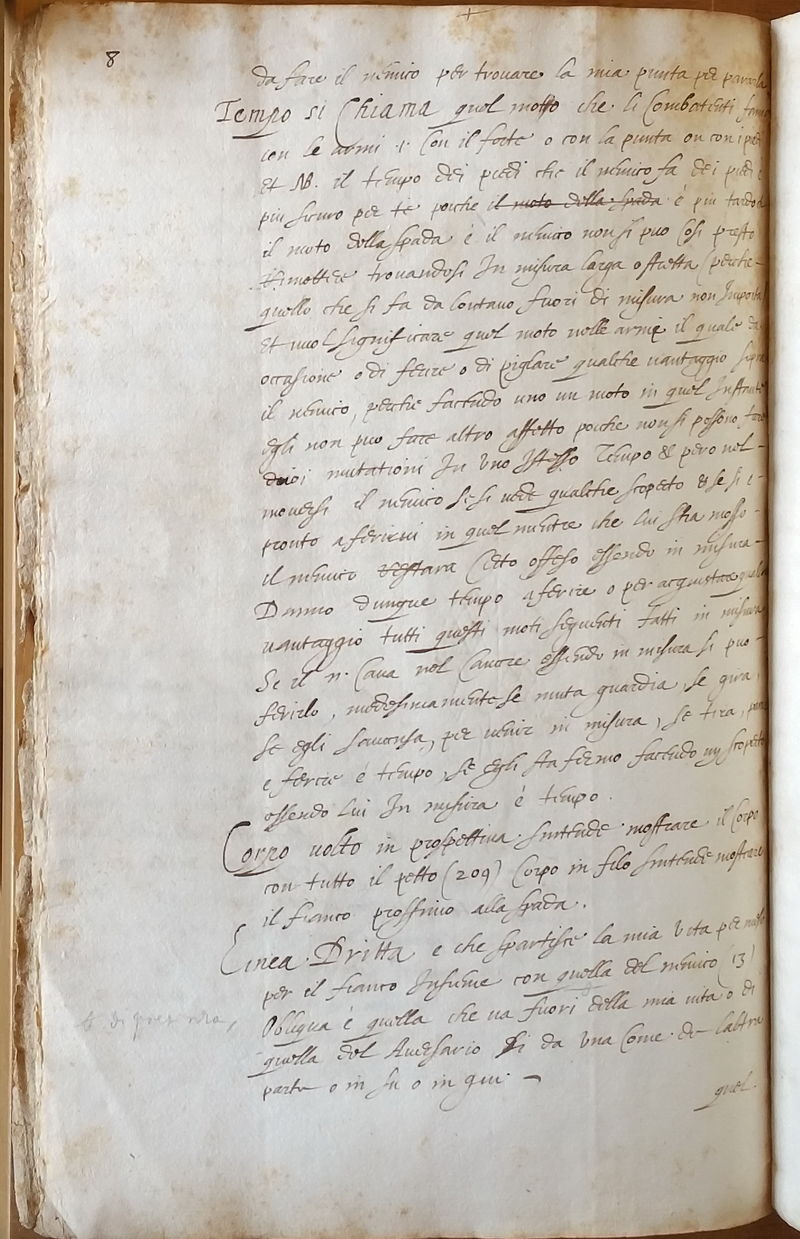 8
da fare il nemico per trouare la mia punta per pararla
Tempo si Chiama quel motto che li Combatenti fanno
con le armi .i. Con il forte o con la punta ou con i piedi
et NB. il tempo dei piedi che il nemico fa dei piedi è
piu sicuro per te poiche il moto della spada è piu tardo
il moto della spada e il nemico non si puo Cosi presto
rimettere trouandosi In misura larga o stretta (perche
quello che si fa da lontano fuori di misura non Importa
et uuol significare quel moto nelle armi il quale da
occasione o di ferire o di piglare qualche uantaggio sopra
il nemico, perche facendo uno un moto in quel Instante
egli non puo fare altro affetto poiche non si possono fare
duoi mutationi In Uno Istesso Tempo & pero nel
mouersi il nemico se si uede qualche scoperto & se si è
pronto a ferirui in quel mentre che lui stia mosso
il nemico restara Certo offeso essendo in misura
Danno dunque tempo a ferire o per acquistar qualche
uantaggio tutti questi moti seguenti fatti in misura
Se il n. Caua nel Cauare essendo in misura si puo
ferirlo, medesimamente se muta guardia, se gira,
se egli s'auansa, per uenir in misura, se tira,
e ferire è tempo, se egli sta fermo facendo un scoperto
essendo lui In misura è tempo.
Corpo uolto in prospettiua s'intende mostrare il Corpo
con tutto il petto (209) Corpo in filo s'intende mostrare
il fianco prossimo alla spada.
Linea Dritta e che spartisce la mia Vita per mezo
per il fianco Insieme con quella del nemico (13)
Obliqua è quella che ua fuori della mia uita o di
quella del Auersario si da Una Come da l'altra
parte o in su o in giu.
quel